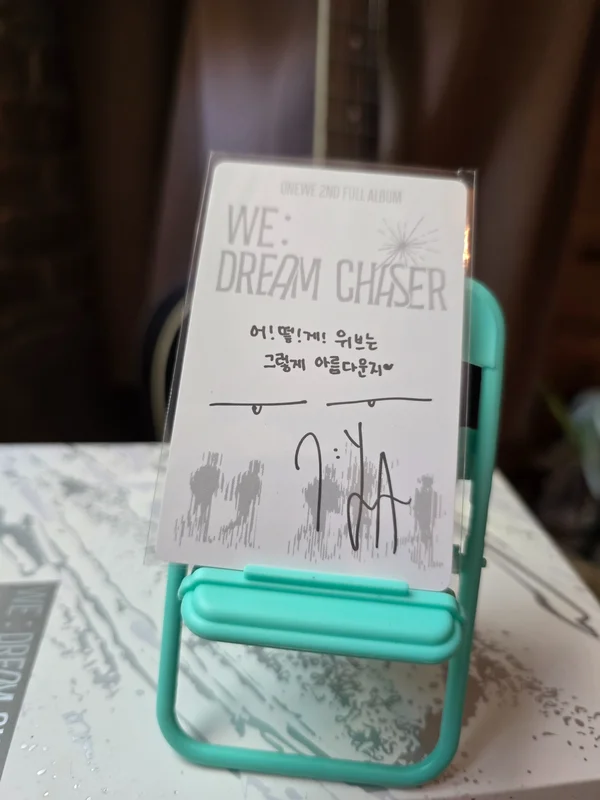 ONEWE 2ND FULL ALBUM
WE:
DREAM CHASER
어! 떻! 게! 위브는
그렇게 아름다운지♥
WE : DREAM